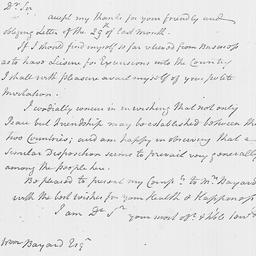 Dr Sir
accept my thanks for your friendly and
obliging Letter of the 29th of last month.
If I should find myself so far released from Business
as to have Leisure for Excursions into the Country
I shall with pleasure avail myself of your polite
Invitation.
I cordially concur in wishing that not only
Peace but Friendship may be established between the
two Countries; and am happy in observing that a
similar Disposition seems to prevail very generally
among the People here.
Be pleased to present my Compts to Mrs Bayard
with the best wishes for your Health & Happiness
I am Dr Sir
your most obt & hble servt
Wm Bayard Esqr